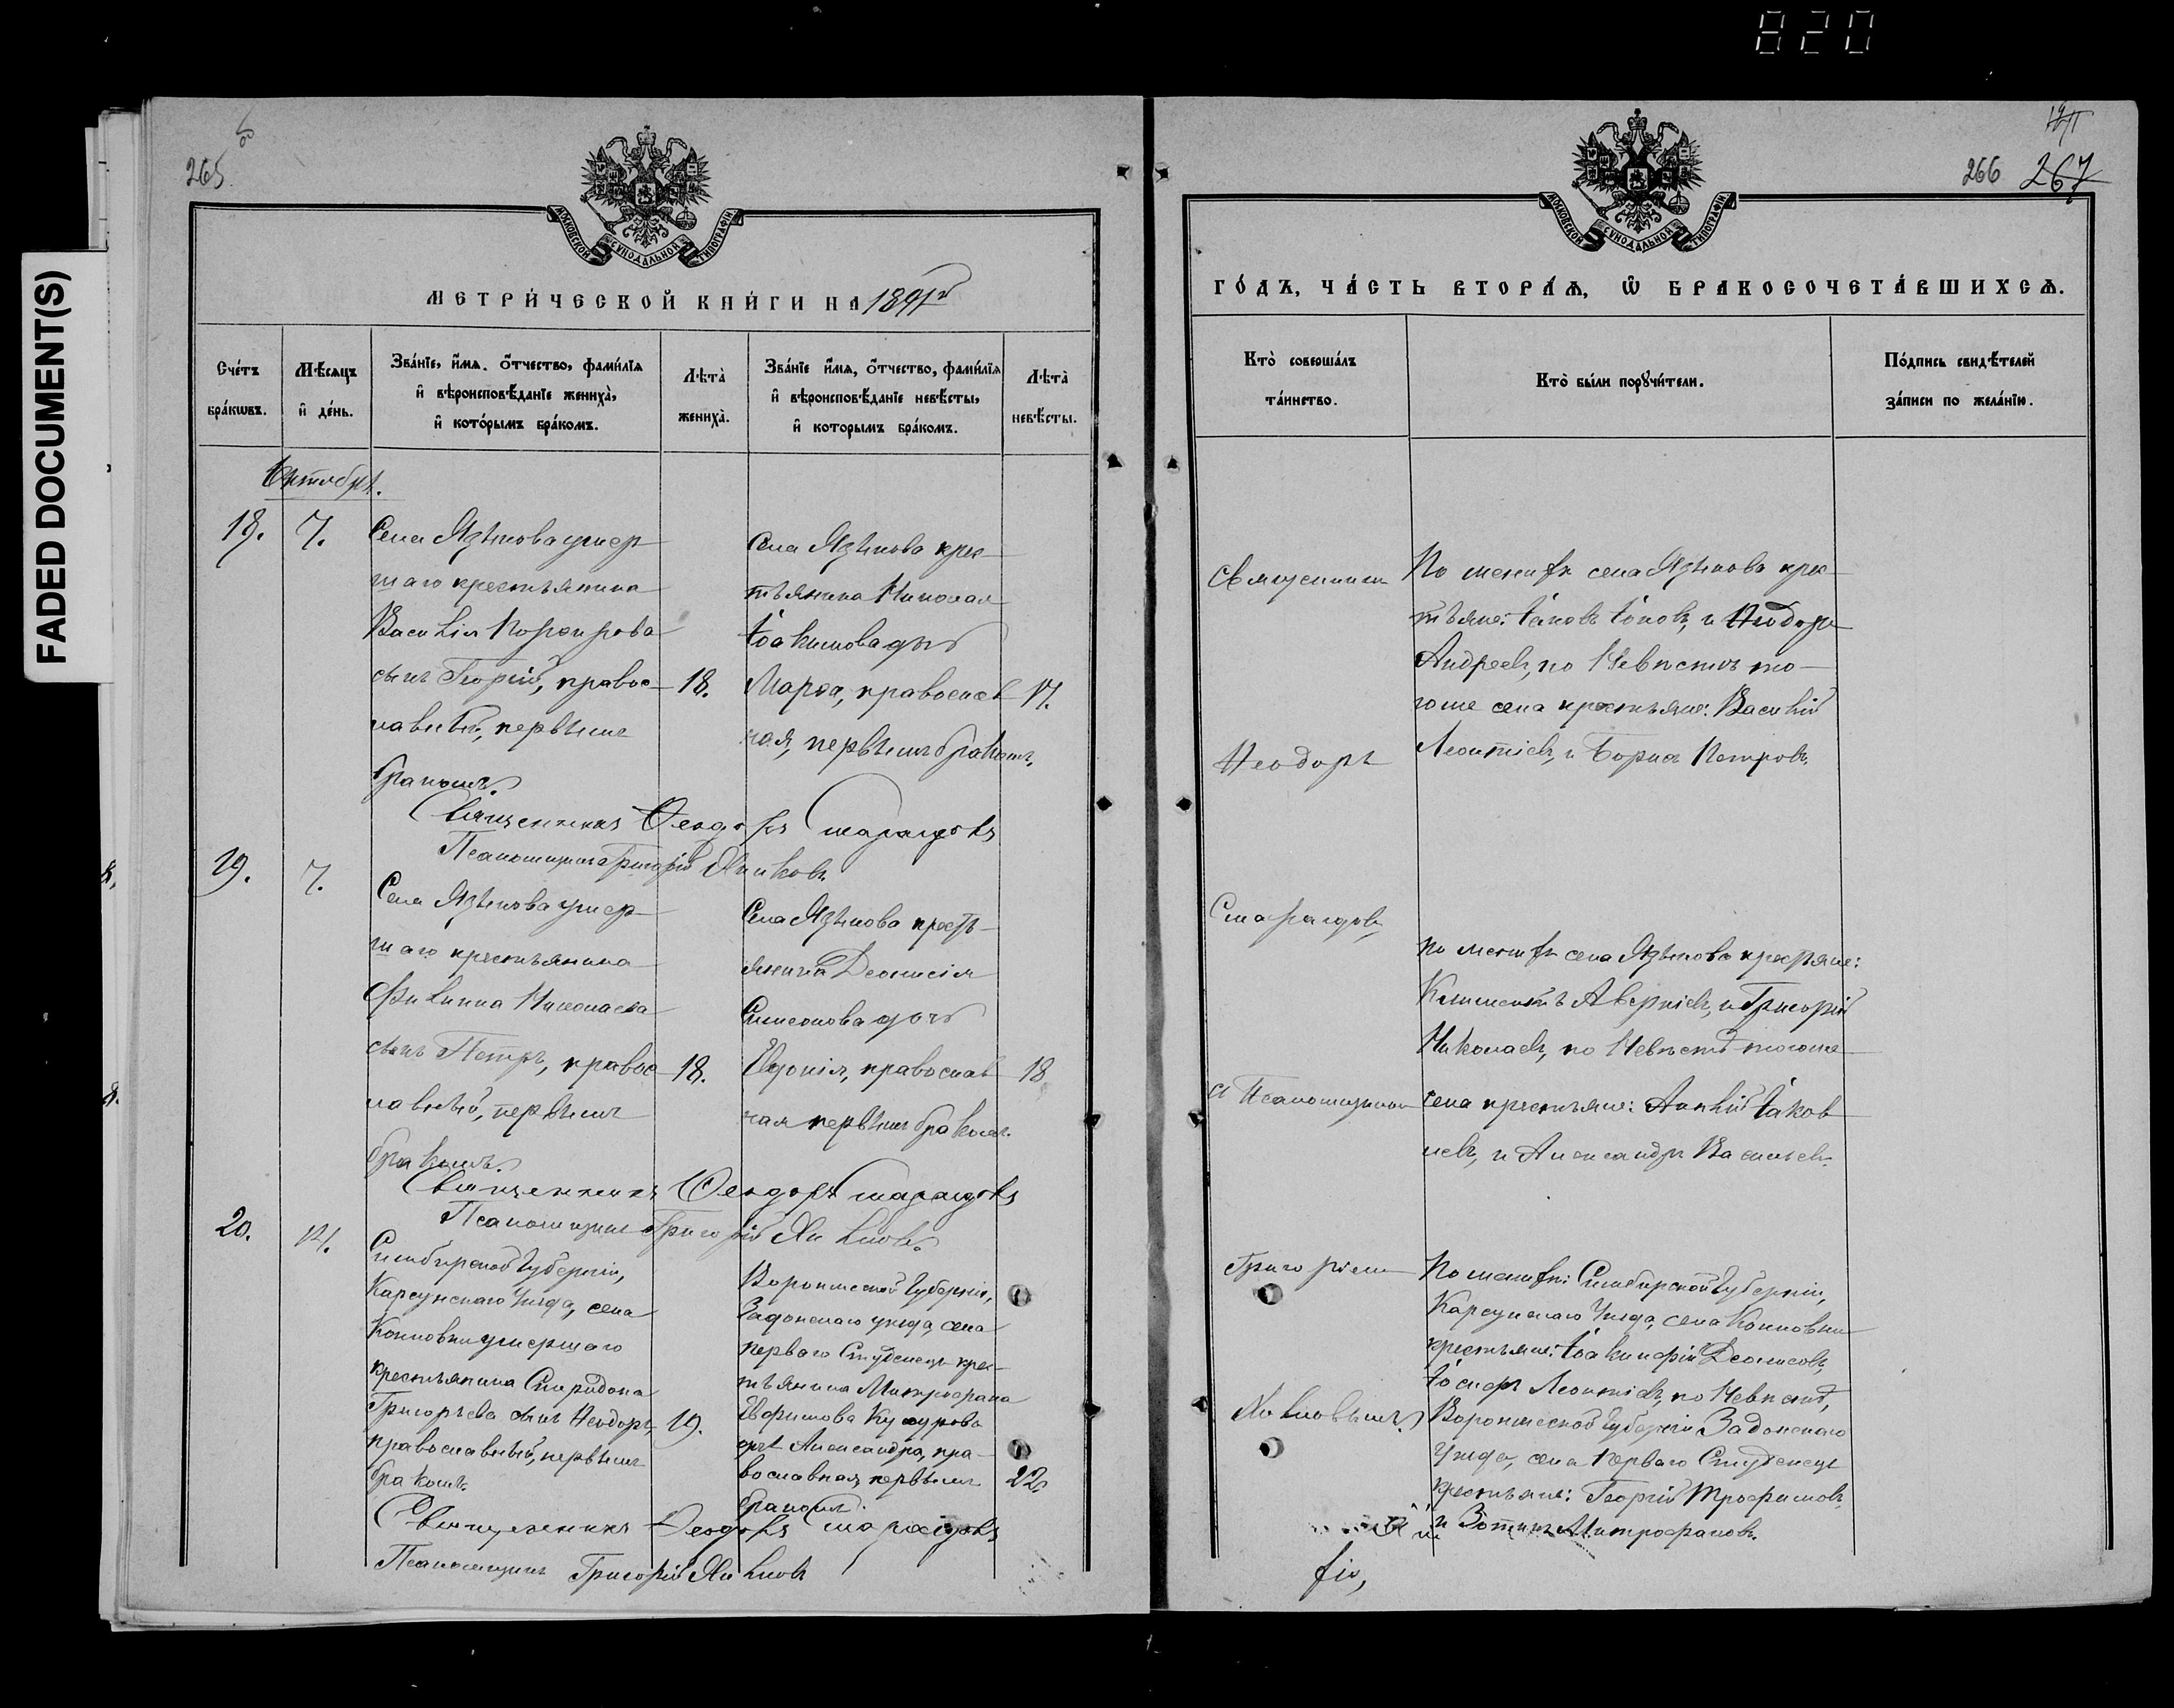 820
FADED DOCUMENT(S)
265
МОСКОВСКОЙ СѴНОДАЛЬНОЙ ТИПОГРАФІИ
МЕТРИ́ЧЕСКОЙ КНИ́ГИ НА 1891
Сче́тъ бра́кѡвъ.
Мѣ́сяцъ и҆ де́нь.
Зва́нїе, и҆́мѧ, о҆́тчество, фами́лїѧ
и҆ вѣроисповѣ́данїе жениха̀,
и҆ кото́рымъ бра́комъ.
Лѣта̀ жениха̀.
Зва́нїе и҆́мѧ, о҆́тчество, фами́лїѧ
и҆ вѣроисповѣ́данїе невѣ́сты,
и҆ которымъ бра́комъ.
Лѣта̀ невѣ́сты.
Октябрь.
18. 7.
Села Языкова умер-
шаго крестьянина
Василія Порфирова
сынъ Георгій, правос-
лавный, первымъ
бракомъ.
18.
Села Языкова крес-
тьянина Николая
Іоакимова дочь
Марѳа, православ-
ная, первымъ бракомъ.
17.
Священникъ Ѳеодоръ Смарагдовъ
Псаломщикъ Григорій
19. 7.
Села Языкова умер-
шаго крестьянина
Филиппа Николаева
сынъ Петръ, правос-
лавный, первымъ
бракомъ.
18.
Села Языкова кресть-
янина Діонисія
Симеонова дочь
Евдокія, православ-
ная первымъ бракомъ.
18
Священникъ Ѳеодоръ Смарагдовъ
Псаломщикъ Григорій
20. 14.
Симбирской Губерніи,
Карсунскаго Уѣзда, села
Коноповки умершаго
крестьянина Спиридона
Григорьева сынъ Ѳеодоръ,
православный, первымъ
бракомъ.
19.
Воронежской Губерніи,
Задонскаго уѣзда, села
перваго Студенецъ крес-
тьянина Митрофана
Евфимова
дочь Александра, пра-
вославная, первымъ
бракомъ.
22.
Священникъ Ѳеодоръ Смарагдовъ
Псаломщикъ Григорій
266 267
МОСКОВСКОЙ СѴНОДАЛЬНОЙ ТИПОГРАФІИ
ГО́ДЪ, ЧА́СТЬ ВТОРА́Ѧ, Ѡ҆ БРАКОСОЧЕТА́ВШИХСѦ.
Кто̀ соверша́лъ
та́инство.
Кто̀ бы́ли порꙋчи́тели.
По́дпись свидѣ́телей
за́писи по жела́нїю.
Священникъ
Ѳеодоръ
Смарагдовъ
съ Псаломщикомъ
Григоріемъ
По женихѣ села Языкова крес-
тьяне: Іаковъ Іоновъ, и Ѳеодоръ
Андреевъ, по Невѣстѣ то-
гоже села крестьяне: Василій
Леонтіевъ, и Борисъ Петровъ.
По женихѣ села Языкова крестьяне:
Климентъ Аверкіевъ, и Григорій
Николаевъ, по Невѣстѣ тогоже
села крестьяне: Іаков-
левъ, и Александръ Васильевъ.
По женихѣ: Симбирской Губерніи,
Карсунскаго Уѣзда, села Коноповки
крестьяне: Іоакинфій Діонисовъ,
Іосифъ Леонтіевъ, по Невѣстѣ,
Воронежской Губерніи Задонскаго
Уѣзда, села Перваго Студенецъ
крестьяне: Георгій Трофимовъ,
и Зотикъ Митрофановъ.